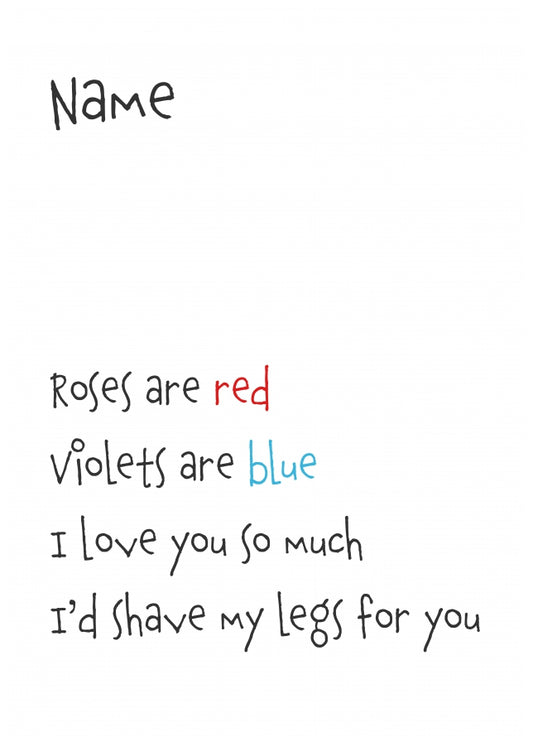 Name
Roses are red
Violets are blue
I love you so much
I'd shave my legs for you